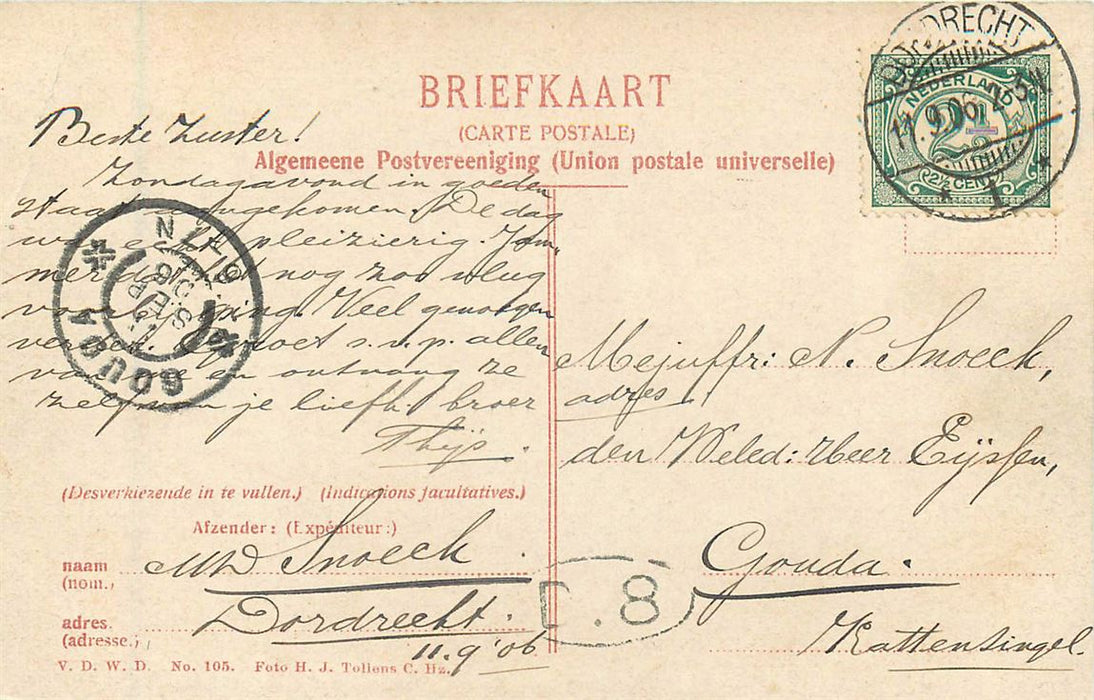 BRIEFKAART
(CARTE POSTALE)
Algemeene Postvereeniging (Union postale universelle)
DORDRECHT
11.9.06
1
NEDERLAND
2½
(2½ CENT)
Beste Zuster!
Zondagavond in goeden
staat aangekomen. De dag
was echt pleizierig. Jam-
mer dat het nog zoo vlug
voorbij ging. Veel genoegen
verder. Gegroet s.v.p. allen
van me en ontvang ze
zelf van je liefh. broer
Thijs.
GOUDA
Mejuffr: N. Snoeck,
adres
den Weled: Heer Eijssen,
Gouda.
Kattensingel.
(Desverkiezende in te vullen.) (Indications facultatives.)
Afzender: (Expéditeur:)
naam
(nom.)
MD Snoeck.
adres.
(adresse.)
Dordrecht.
11.9'06
D.8
V. D. W. D. No. 105. Foto H. J. Tollens C. Hz.